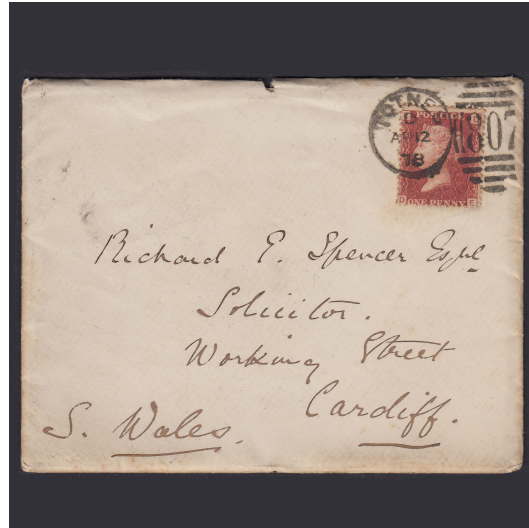 TOTNES
AP 12
78
807
POSTAGE
ONE PENNY
D E
Richard E. Spencer Esqre
Solicitor.
Working Street
Cardiff.
S. Wales.